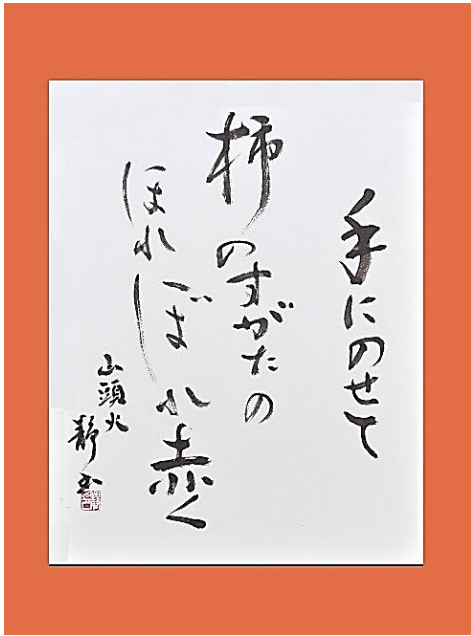 手にのせて
柿のすがたの
ほれぼれ赤く
山頭火
静書